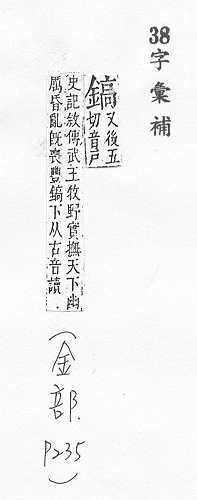 38字彙補
鎬又後五
切音戸
史記敘傳武王牧野實撫天下幽
厲昏亂旣喪豐鎬下从古音讀.
(金部.
P235)